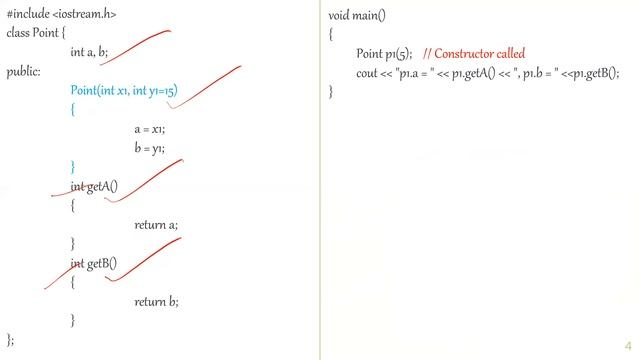 #include <iostream.h>
class Point {
int a, b;
public:
Point(int x1, int y1=15)
{
a = x1;
b = y1;
}
int getA()
{
return a;
}
int getB()
{
return b;
}
};
void main()
{
Point p1(5); // Constructor called
cout << "p1.a = " << p1.getA() << ", p1.b = " <<p1.getB();
}
4